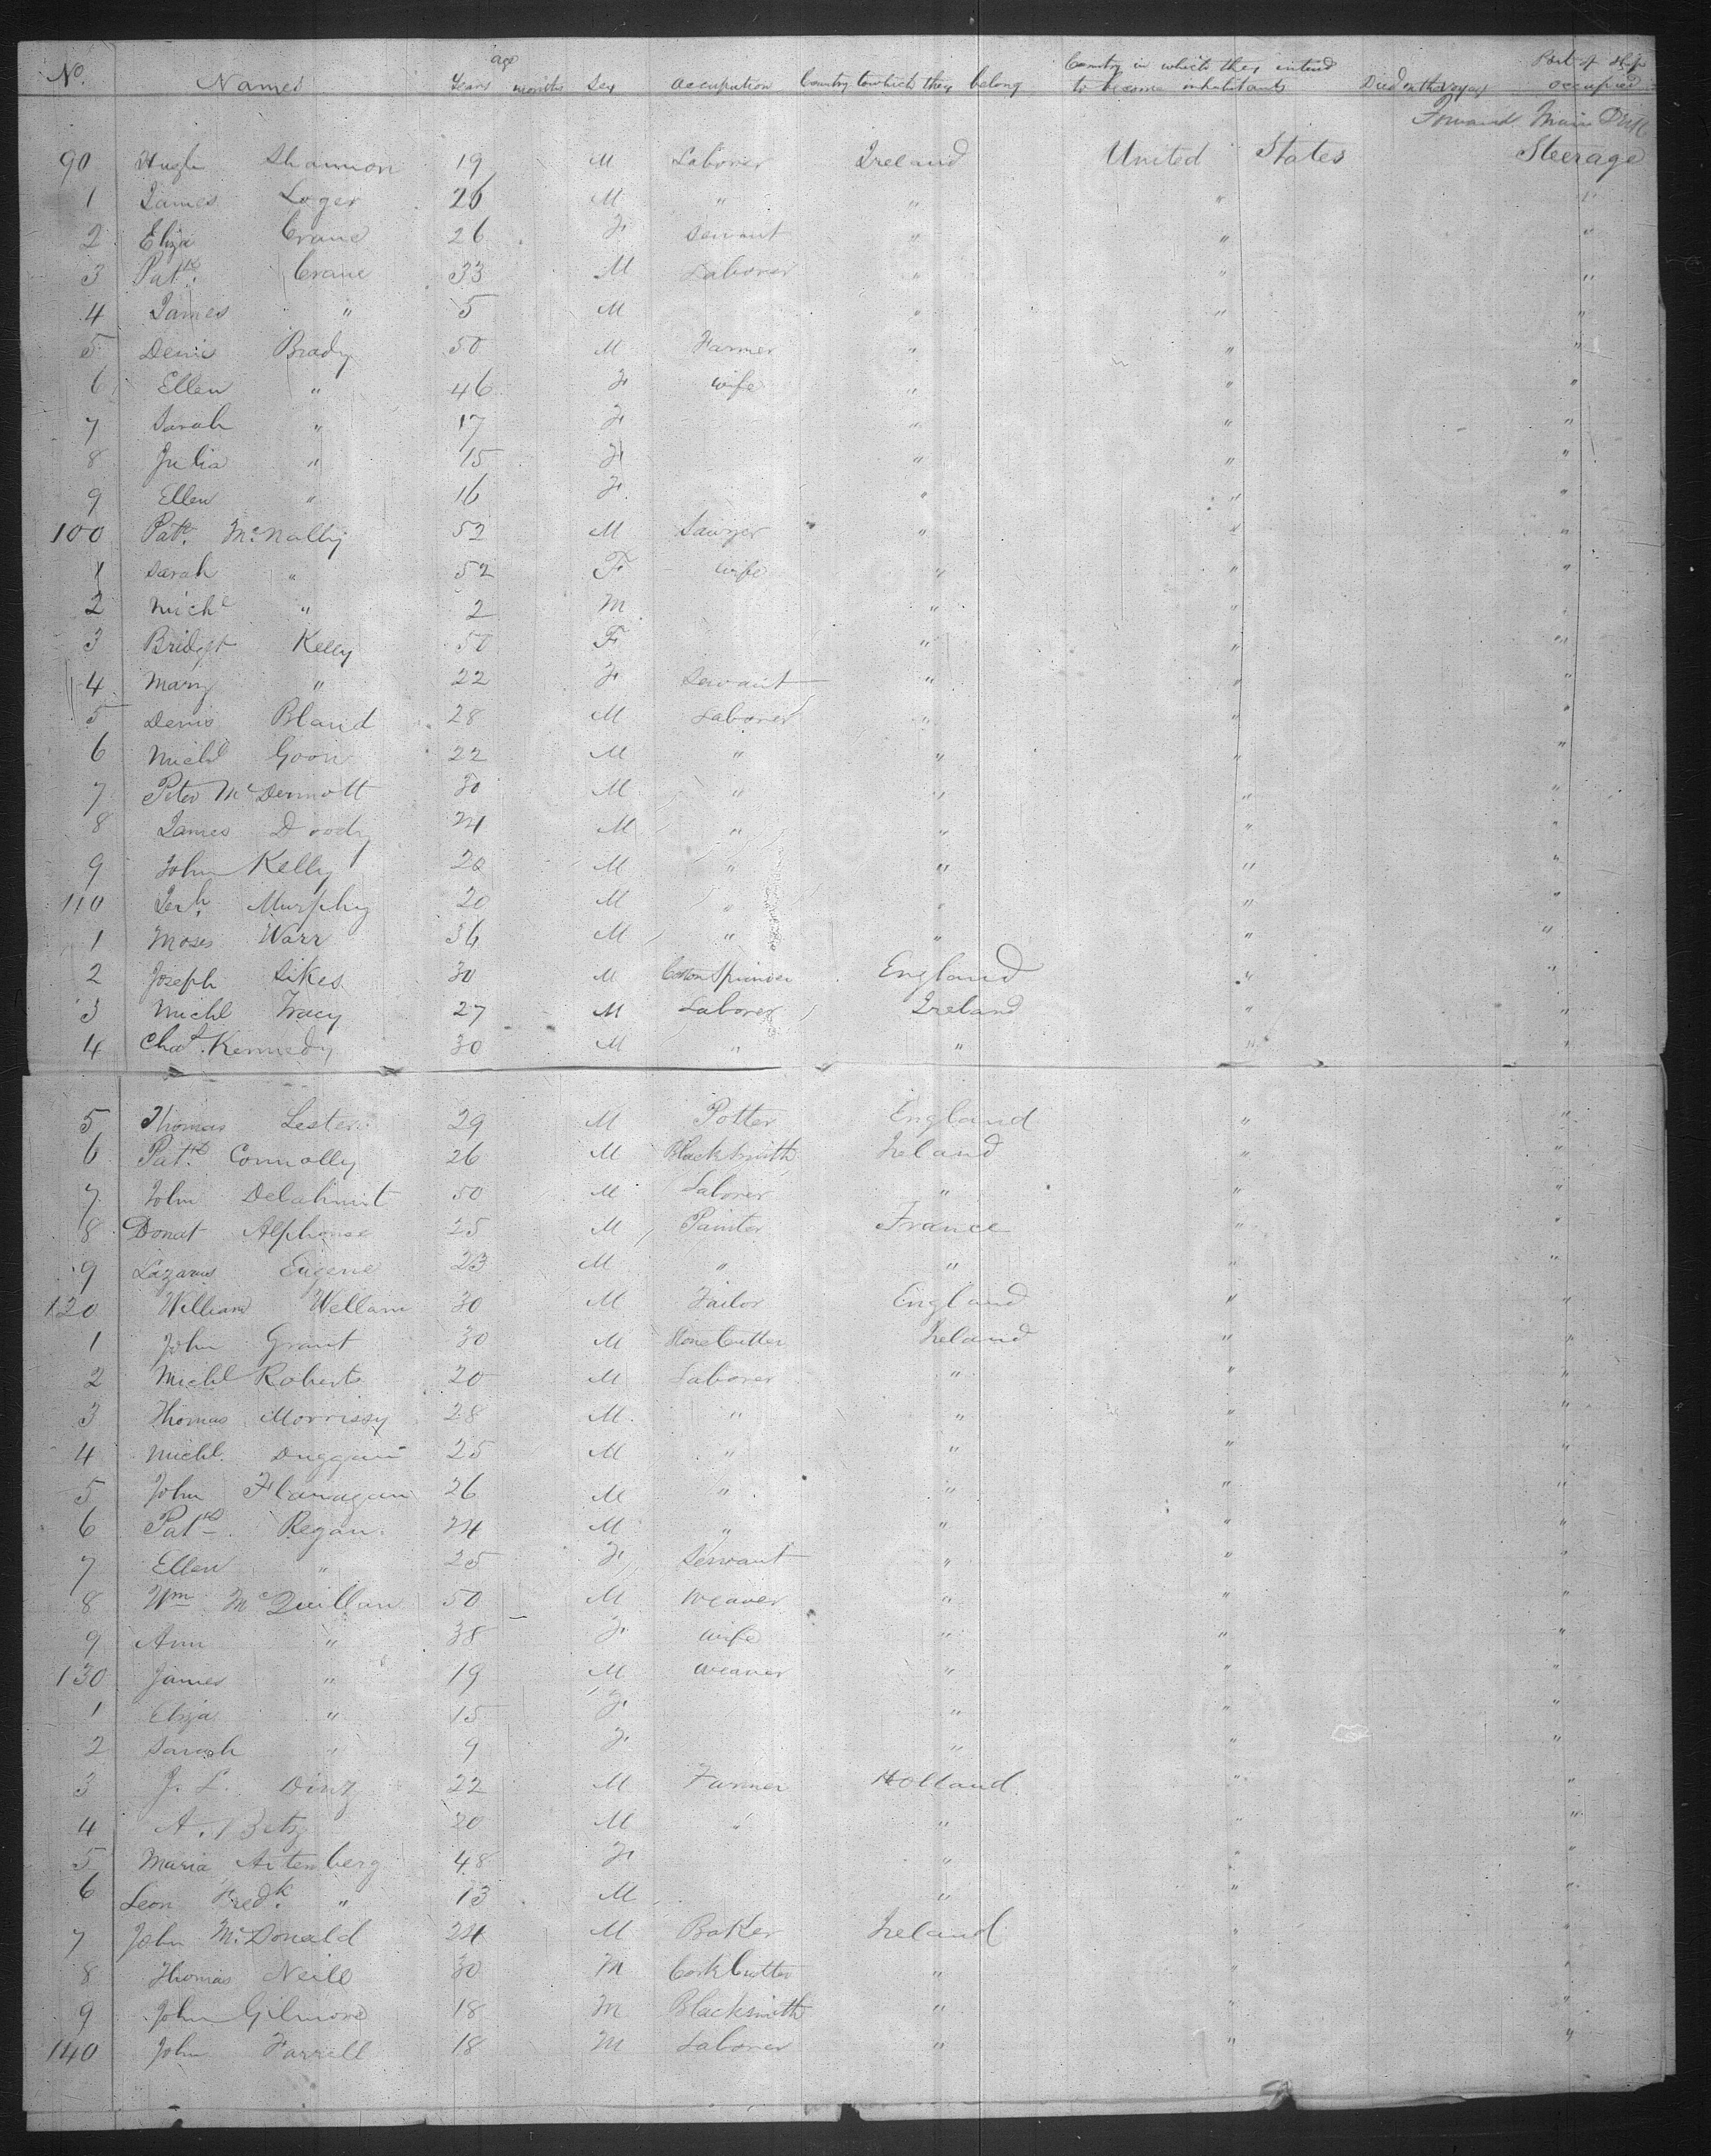 No. Names age Years months Sex Occupation Country to which they belong Country in which they intend to become inhabitants Died on the voyage Part of Ship occupied
Forward Main Deck
90 Hugh Shannon 19 M Laborer Ireland United States Steerage
1 James Loger 26 M " " " "
2 Eliza Crane 26 F Servant " " "
3 Patk. Crane 33 M Laborer " " "
4 James " 5 M " " "
5 Denis Brady 50 M Farmer " " "
6 Ellen " 46 F wife " " "
7 Sarah " 17 F " " "
8 Julia " 15 F " " "
9 Ellen " 16 F " " "
100 Patk. McNally 52 M Sawyer " " "
1 Sarah " 52 F wife " " "
2 Michl " 2 M " " "
3 Bridget Kelly 50 F " " "
4 Mary " 22 F Servant " " "
5 Denis Bland 28 M Laborer " " "
6 Michl 22 M " " " "
7 Peter McDermott 30 M " " " "
8 James Doody 24 M " " " "
9 John Kelly 20 M " " " "
110 Jerh. Murphy 20 M " " " "
1 Moses Warr 36 M " " " "
2 Joseph Sikes 30 M Cotton Spinner England " "
3 Michl Tracy 27 M Laborer Ireland " "
4 Chas. Kennedy 30 M " " " "
5 Thomas Lester 29 M Potter England " "
6 Patk. Connolly 26 M Blacksmith Ireland " "
7 John Delahunt 50 M Laborer " " "
8 Donat Alphonse 25 M Painter France " "
9 Lazarus Eugene 23 M " " " "
120 William Wellam 30 M Tailor England " "
1 John Grant 30 M Stone Cutter Ireland " "
2 Michl Roberts 20 M Laborer " " "
3 Thomas Morrissy 28 M " " " "
4 Michl. Duggan 25 M " " " "
5 John Flanagan 26 M " " " "
6 Patk. Regan 24 M " " " "
7 Ellen " 25 F Servant " " "
8 Wm McQuillan 50 M weaver " " "
9 Ann " 38 F wife " " "
130 James " 19 M weaver " " "
1 Eliza " 15 F " " "
2 Sarah " 9 F " " "
3 J. L. Dinz 22 M Farmer Holland " "
4 A. Betz 20 M " " " "
5 Maria Artenberg 48 F " " "
6 Leon Fredk. " 13 M " " "
7 John McDonald 24 M Baker Ireland " "
8 Thomas Neill 30 M Cork Cutter " " "
9 John Gilmore 18 M Blacksmith " " "
140 John Farrell 18 M Laborer " " "